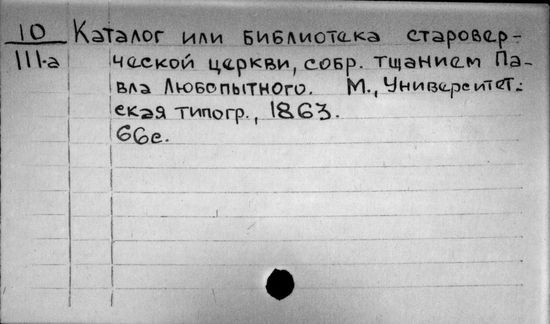 10 Каталог или библиотека старовер-
III-а ческой церкви, собр. тщанием Па-
вла Любопытного. М., Университет.
ская типогр., 1863.
66с.